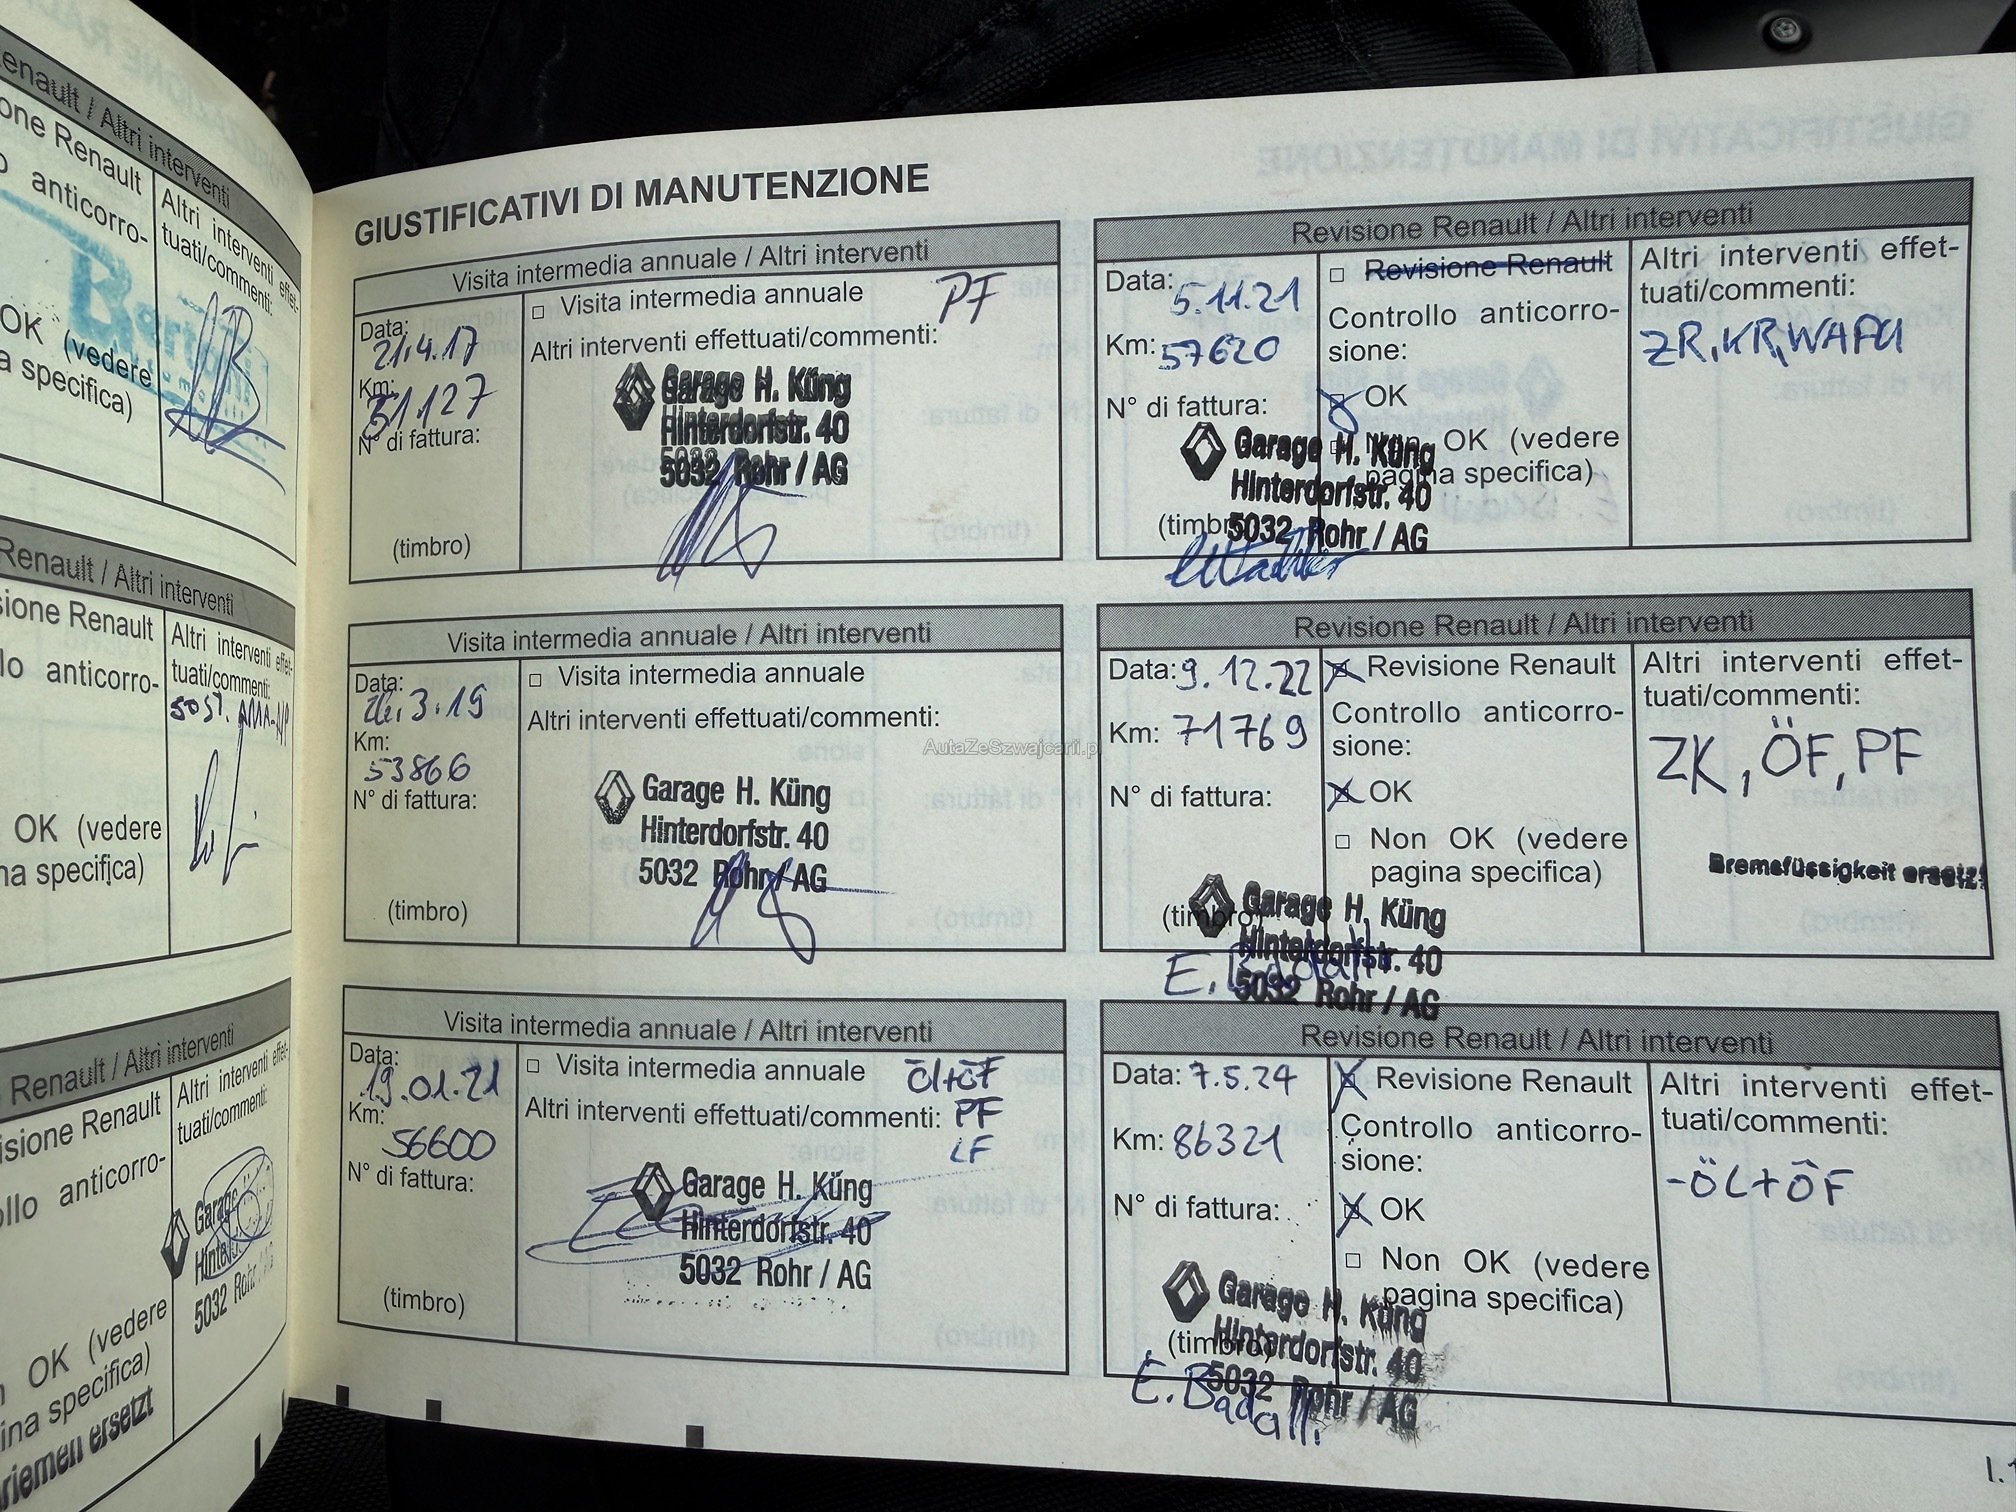 Renault / Altri interventi
one Renault
anticorro-
OK (vedere
a specifica)
Altri interventi effet-
tuati/commenti:
Renault / Altri interventi
sione Renault
lo anticorro-
OK (vedere
na specifica)
Altri interventi effet-
tuati/commenti:
SOST.
Renault / Altri interventi
isione Renault
ollo anticorro-
OK (vedere
ina specifica)
riemen ersetzt
Altri interventi effet-
tuati/commenti:
Garage
5032 Rohr
GIUSTIFICATIVI DI MANUTENZIONE
Visita intermedia annuale / Altri interventi
Data:
21.4.17
Km:
51.127
N° di fattura:
(timbro)
□ Visita intermedia annuale PF
Altri interventi effettuati/commenti:
Garage H. Küng
Hinterdorfstr. 40
5032 Rohr / AG
Visita intermedia annuale / Altri interventi
Data:
3.19
Km:
53866
N° di fattura:
(timbro)
□ Visita intermedia annuale
Altri interventi effettuati/commenti:
Garage H. Küng
Hinterdorfstr. 40
5032 Rohr / AG
Visita intermedia annuale / Altri interventi
Data:
19.01.21
Km:
56600
N° di fattura:
(timbro)
□ Visita intermedia annuale Öl+ÖF
Altri interventi effettuati/commenti: PF
LF
Garage H. Küng
Hinterdorfstr. 40
5032 Rohr / AG
Revisione Renault / Altri interventi
Data:
5.11.21
Km: 57620
N° di fattura:
(timbro)
□ Revisione Renault
Controllo anticorro-
sione:
OK
□ Non OK (vedere
pagina specifica)
Garage H. Küng
Hinterdorfstr. 40
5032 Rohr / AG
Altri interventi effet-
tuati/commenti:
ZR, KR,
Revisione Renault / Altri interventi
Data: 9.12.22
Km: 71769
N° di fattura:
(timbro)
Revisione Renault
Controllo anticorro-
sione:
OK
□ Non OK (vedere
pagina specifica)
Garage H. Küng
Hinterdorfstr. 40
5032 Rohr / AG
E. Badalli
Altri interventi effet-
tuati/commenti:
ZK, ÖF, PF
Bremsfüssigkeit ersetzt
Revisione Renault / Altri interventi
Data: 7.5.24
Km: 86321
N° di fattura:
(timbro)
Revisione Renault
Controllo anticorro-
sione:
OK
□ Non OK (vedere
pagina specifica)
Garage H. Küng
Hinterdorfstr. 40
5032 Rohr / AG
E. Badalli
Altri interventi effet-
tuati/commenti:
-ÖL+ÖF
AutaZeSzwajcarii.pl